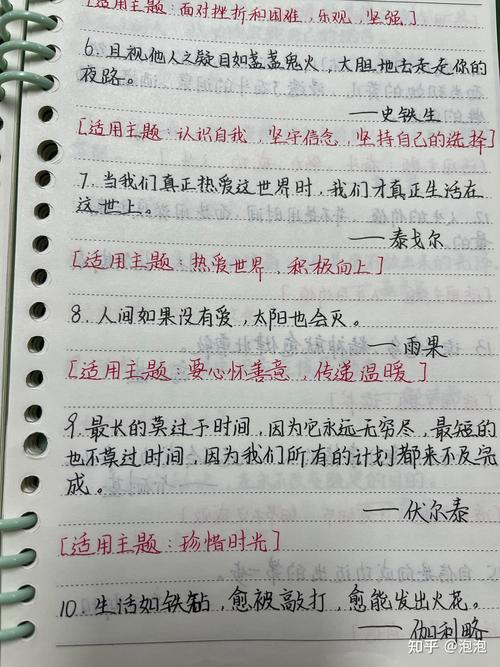 [适用主题:面对挫折和困难,乐观,坚强]
6. 且视他人之疑目如盏盏鬼火,大胆地去走走你的
夜路。
——史铁生
[适用主题:认识自我,坚守信念,坚持自己的选择]
7. 当我们真正热爱这世界时,我们才真正生活在
这世上。
——泰戈尔
[适用主题:热爱世界,积极向上]
8. 人间如果没有爱,太阳也会灭。
——雨果
[适用主题:要心怀善意,传递温暖]
9. 最长的莫过于时间,因为它永远无穷尽,最短的
也不莫过时间,因为我们所有的计划都来不及完
成。
——伏尔泰
[适用主题:珍惜时光]
10. 生活如铁钻,愈被敲打,愈能发出火花。
——伽利略
知乎 @泡泡